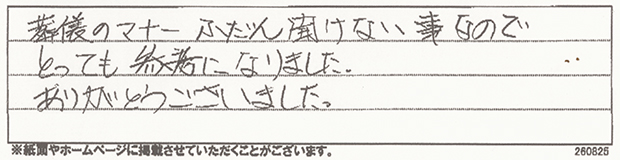 葬儀のマナー ふだん聞けない事なので
とっても参考になりました。
ありがとうございました。
※紙面やホームページに掲載させていただくことがございます。 260825